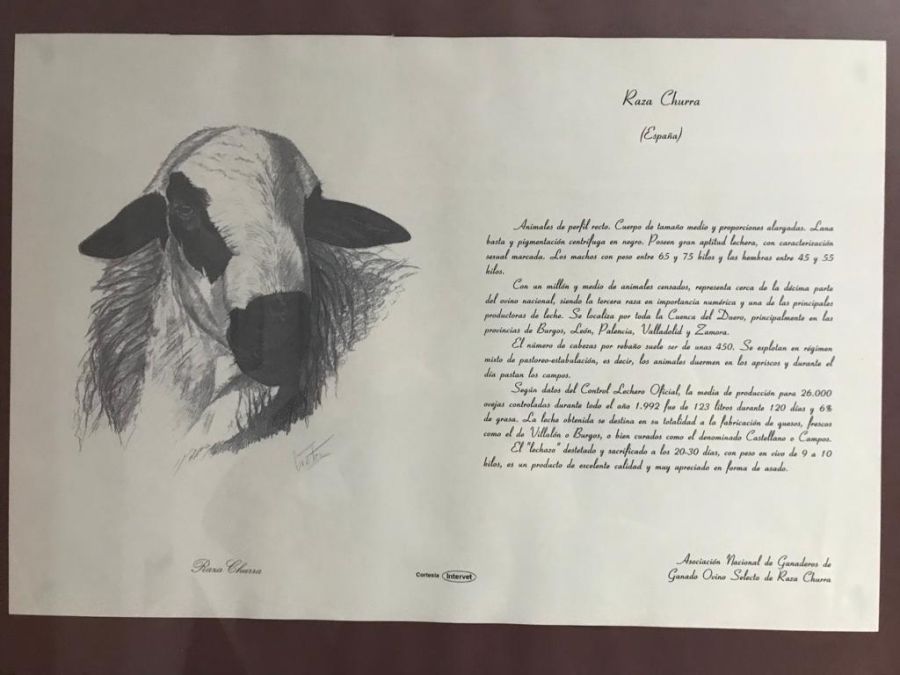 Raza Churra
(España)
Animales de perfil recto. Cuerpo de tamaño medio y proporciones alargadas. Lana
basta y pigmentación centrífuga en negro. Poseen gran aptitud lechera, con caracterización
sexual marcada. Los machos con peso entre 65 y 75 kilos y las hembras entre 45 y 55
kilos.
Con un millón y medio de animales censados, representa cerca de la décima parte
del ovino nacional, siendo la tercera raza en importancia numérica y una de las principales
productoras de leche. Se localiza por toda la Cuenca del Duero, principalmente en las
provincias de Burgos, León, Palencia, Valladolid y Zamora.
El número de cabezas por rebaño suele ser de unas 450. Se explotan en régimen
mixto de pastoreo-estabulación, es decir, los animales duermen en los apriscos y durante el
día pastan los campos.
Según datos del Control Lechero Oficial, la media de producción para 26.000
ovejas controladas durante todo el año 1.992 fue de 123 litros durante 120 días y 6%
de grasa. La leche obtenida se destina en su totalidad a la fabricación de quesos, frescos
como el de Villalón o Burgos, o bien curados como el denominado Castellano o Campos.
El "lechazo" destetado y sacrificado a los 20-30 días, con peso en vivo de 9 a 10
kilos, es un producto de excelente calidad y muy apreciado en forma de asado.
Raza Churra
Cortesía Intervet
Asociación Nacional de Ganaderos de
Ganado Ovino Selecto de Raza Churra